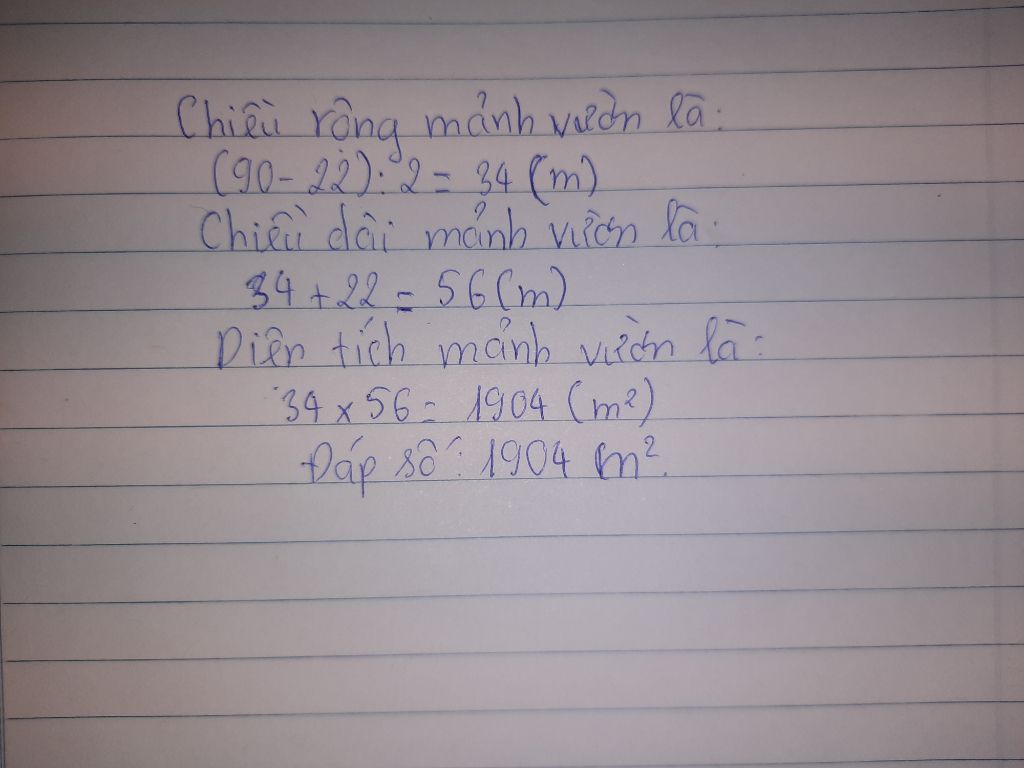 Chiều rộng mảnh vườn là:
(90 - 22) : 2 = 34 (m)
Chiều dài mảnh vườn là:
34 + 22 = 56 (m)
Diện tích mảnh vườn là:
34 x 56 = 1904 (m²)
Đáp số: 1904 m².